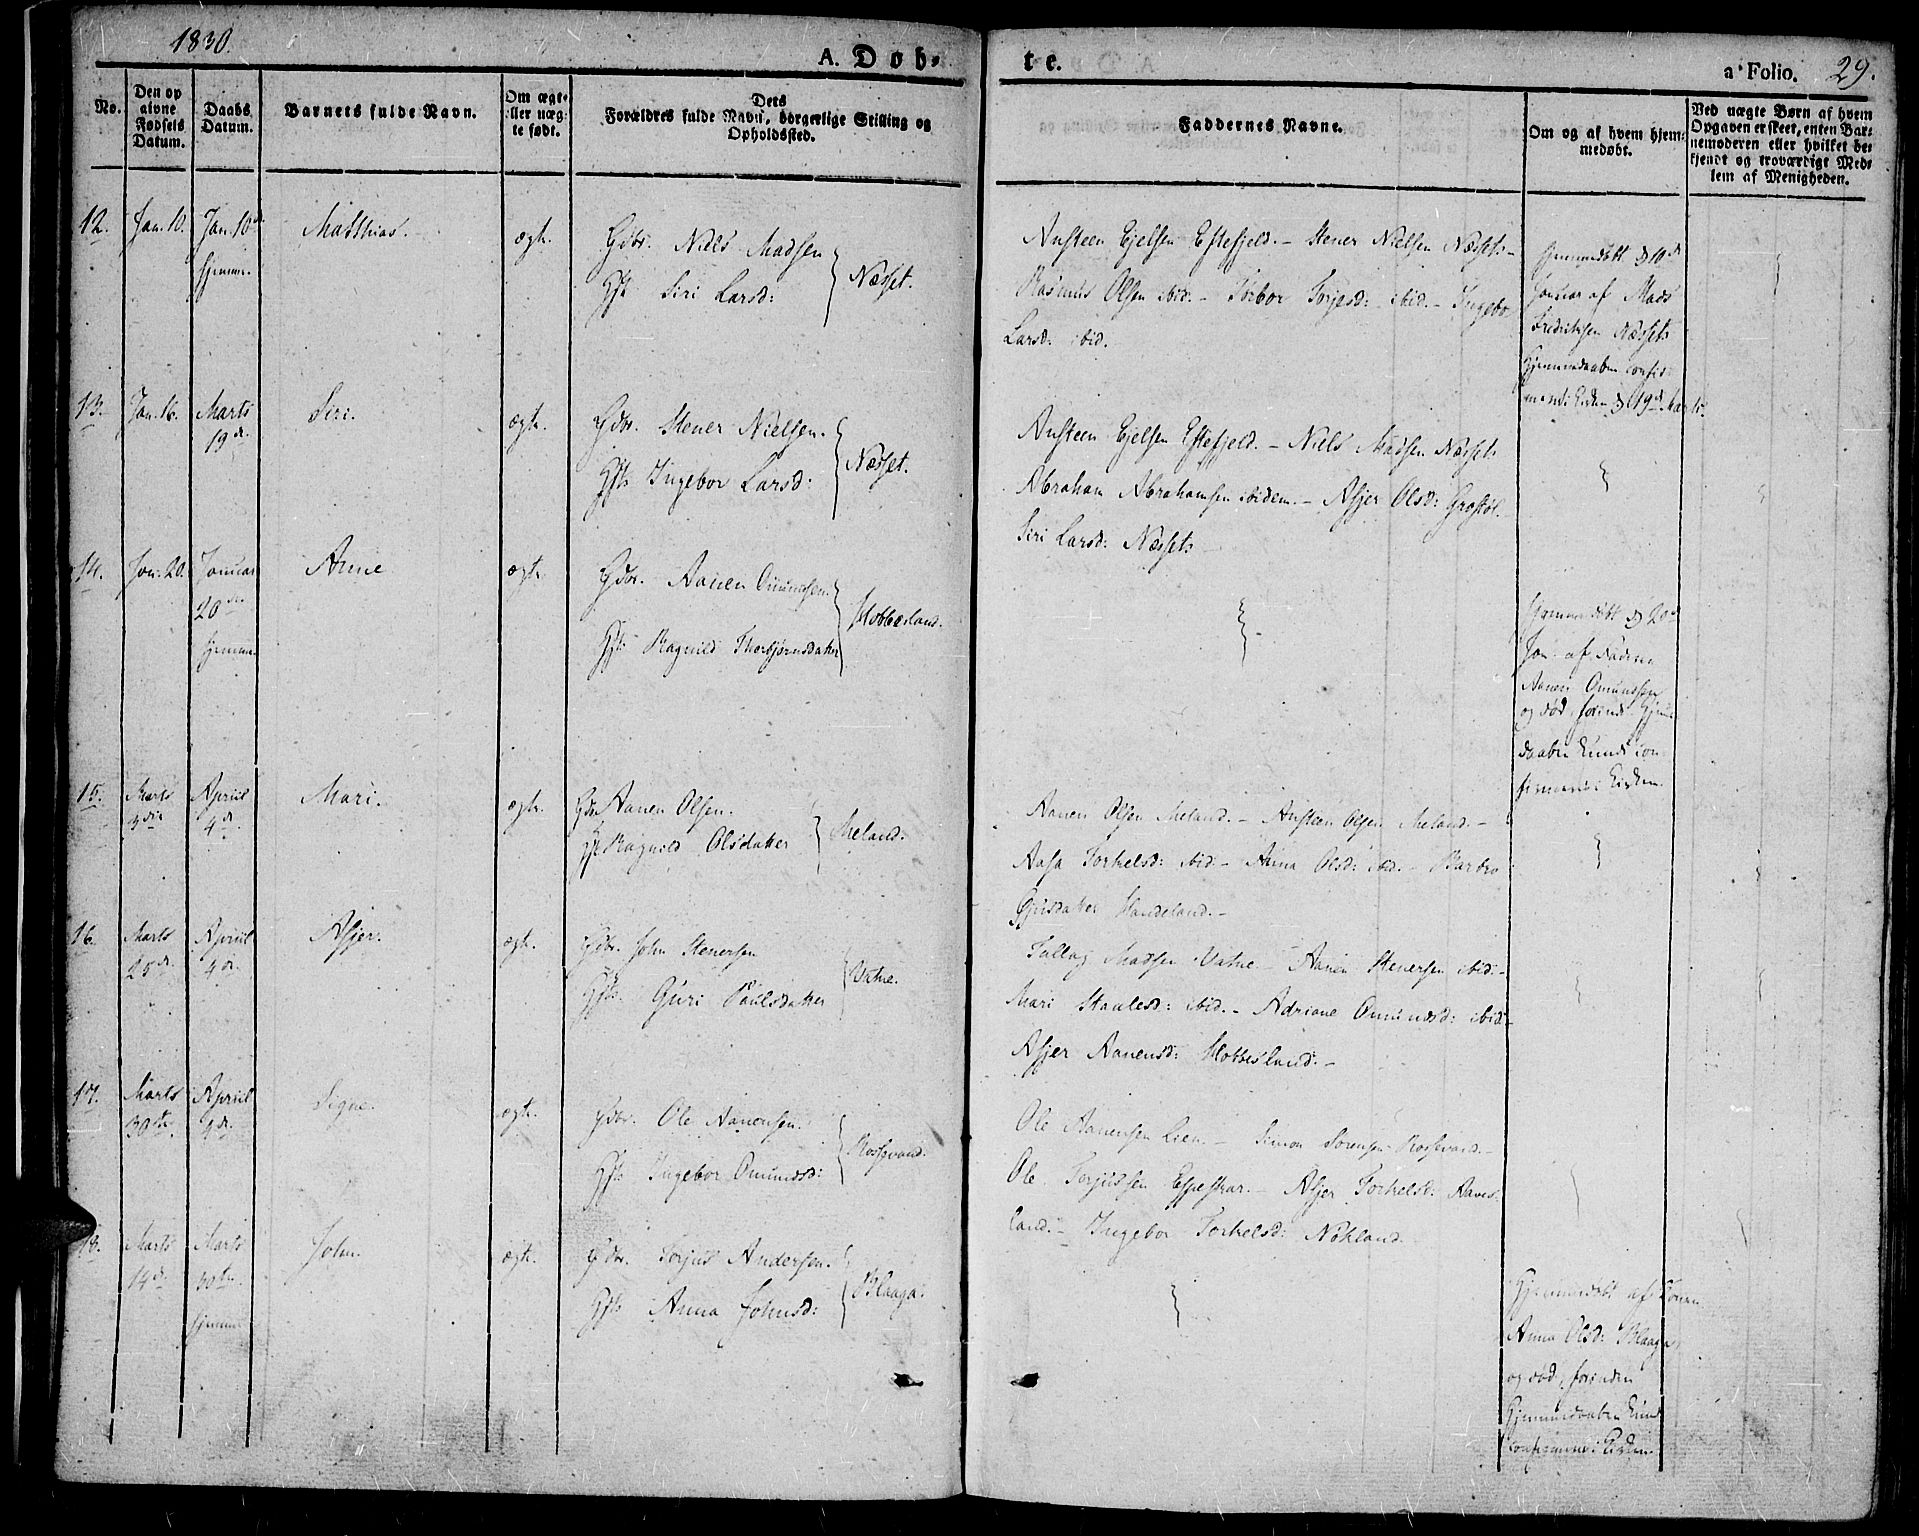 1830.
A. Døb-
te.
a Folio. 29.
No.
Den op
alvne
Fødsels
Datum.
Daabs
Datum.
Barnets fulde Navn.
Om ægt-
eller uæg-
te født.
Dets
Forældres fulde Navn, borgerlige Stilling og
Opholdssted.
Faddernes Navne.
Om og af hvem hjem-
medøbt.
Ved uægte Børn af hvem
Opgaven er skeet, enten Bar-
nemoderen eller hvilket be-
kjendt og troværdigt Med-
lem af Menigheden.
12.
Jan. 10.
Jan. 10de
hjemme.
Matthias.
ægte.
Gdbr. Niels Madsen
Hst. Siri Larsd:
Næsset.
Ansteen Ejelsen Estefjeld. – Stener Nielsen Næsset. –
Rasmus Olsen ibid. – Torbor Torjesd: ibid. – Ingebor
Larsd: ibid.
Hjemmedøbt d 10de
Januar af Mads
Fredriksen Næsset
Hjemmedaaben confir-
mert i Kirken d 19de Marts.
13.
Jan. 16.
Marts
19de.
Siri.
ægte.
Gdbr. Stener Nielsen.
Hst. Ingebor Larsd:
Næsset.
Ansteen Ejelsen Estefjeld. – Niels Madsen Næsset
Abraham Abrahamsen ibidem. – Asjer Olsd: Grostøl
Siri Larsd: Næsset
14.
Jan. 20.
Januar
20de
hjemme.
Anne
ægte.
Gdbr. Aanen Omundsen.
Hst. Ragnild Thorbjørnsdatter
Hobbesland.
Hjemmedøbt d 20de
Jan. af Faderen
Aanen Omundsen
og død, forind Hjem-
daaben kunde con-
firmeres i Kirken.
15.
Marts
Apriil
4de.
Mari.
ægte.
Gdbr. Aanen Olsen.
Hst. Ragnild Olsdatter
Meland.
Aanen Olsen Meland. – Ansteen Olsen Meland. –
Aasa Torkelsd: ibid: – Anna Olsd: ibid. – Barbro
Gjusdatter Handeland. –
16.
Marts
25de.
Apriil
4de.
Asjer.
ægte.
Gdbr. John Stenersen
Hst. Guri Paulsdatter
Vatne.
Tallag Madsen Vatne – Aanen Stenersen ibid: –
Mari Staalesd: ibid. – Adriane Omundsd: ibid: –
Asjer Aanensd: Hobbesland: –
17.
Marts
30te.
Apriil
4de.
Signe.
ægte.
Gdbr. Ole Aanensen.
Hst. Ingebor Omundsd:
Rossevand.
Ole Aanensen Lien. – Simon Sørensen Rossevand. –
Ole Torjussen Espeskar. – Asjer Torkelsd: Aaves-
land. – Ingebor Torkelsd: Nökland.
18.
Marts
14de.
Marts
30te.
hjemme
John.
ægte.
Gdbr. Torjus Andersen.
Hst. Anna Johnsd:
Blaaga.
Hjemmedøbt af Konen
Anna Olsd: Blaaga,
og død, forinden
Hjemmedaaben kund
confirmeres i Kirken.